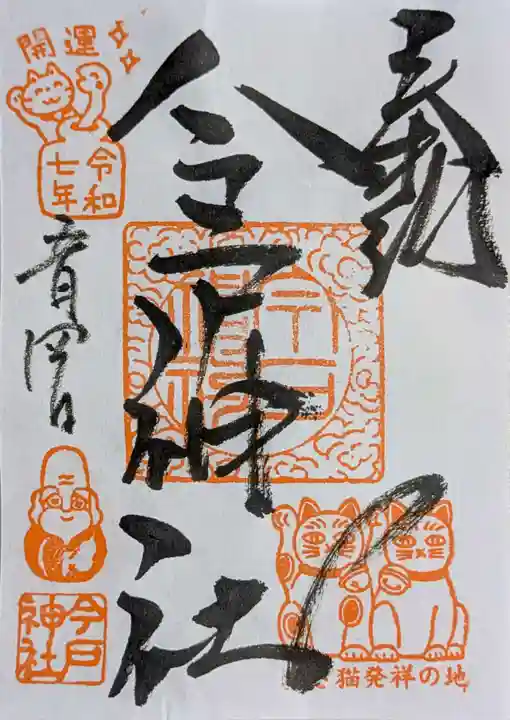 奉拝
今戸神社
猫発祥の地
開運
令和
七年
今戸
神社